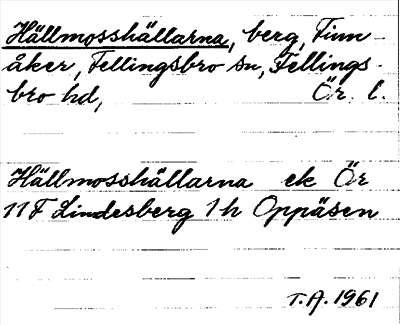 Hällmosshällarna, berg, Finn-
åker, Fellingsbro sn, Fellings-
bro hd, Ör. l.
Hällmosshällarna ek Ör
11F Lindesberg 1h Oppåsen
T.A. 1961